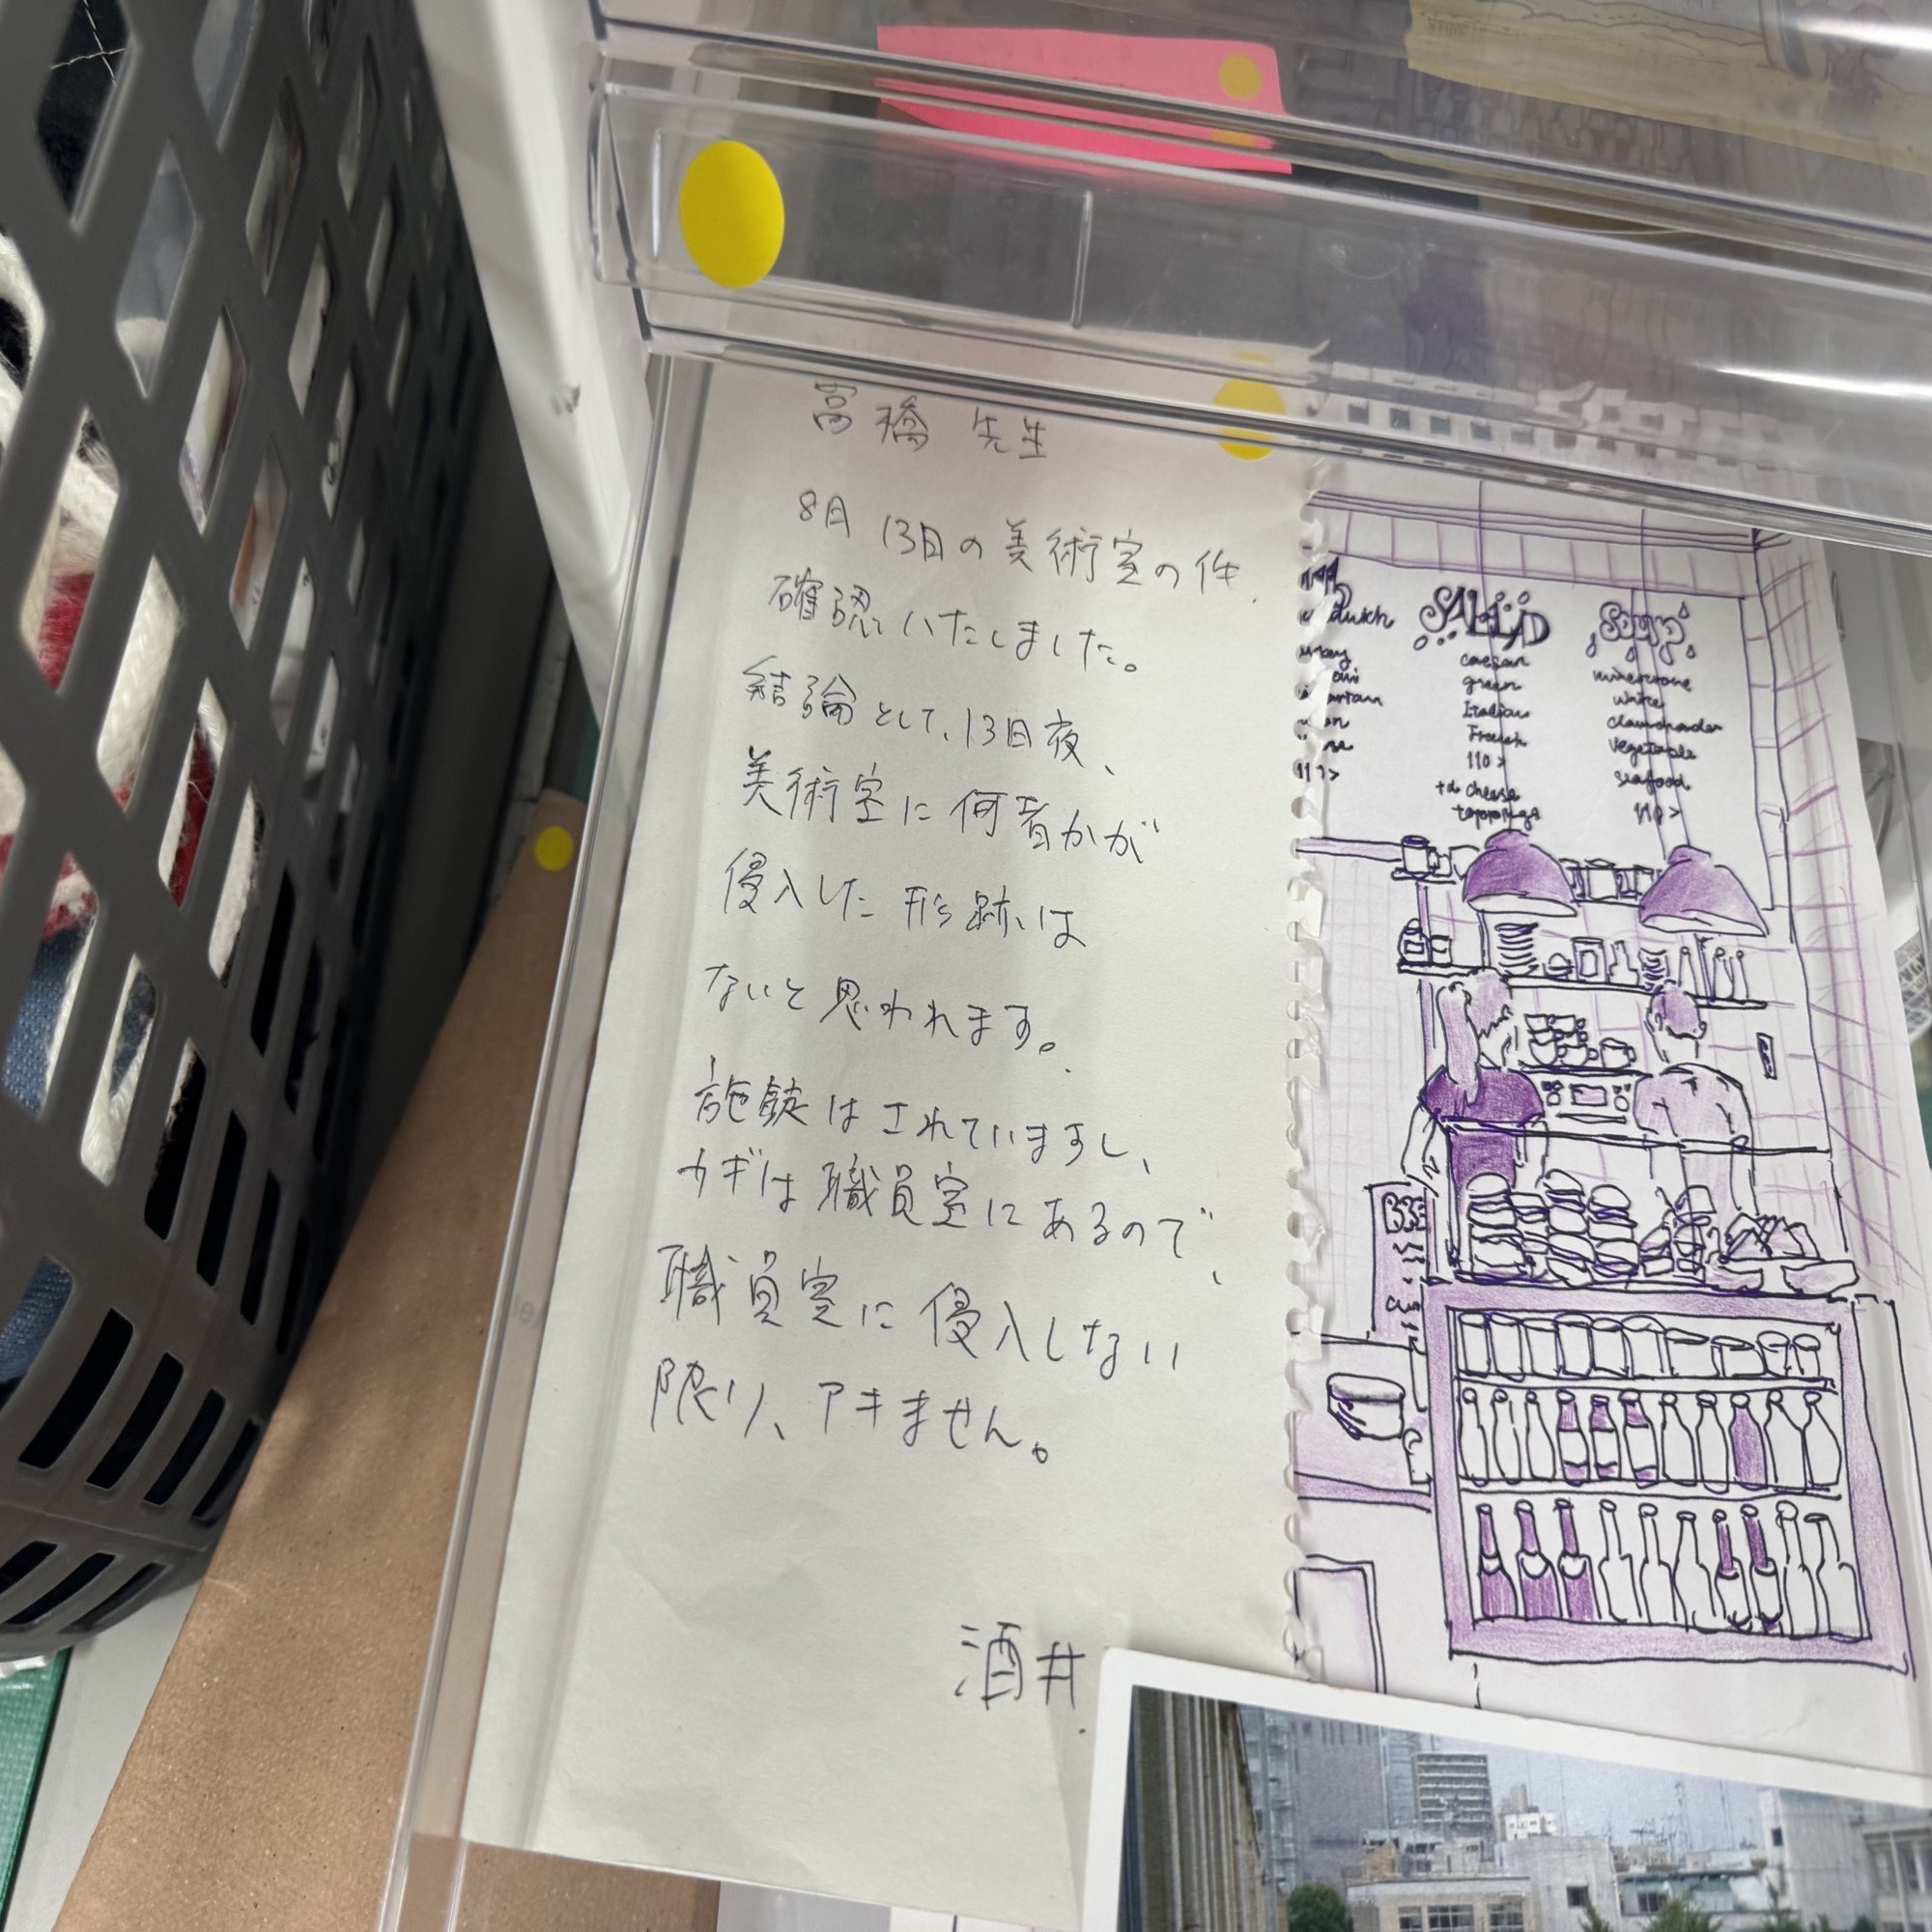 高橋 先生
8月 13日の美術室の件、
確認いたしました。
結論として、13日夜、
美術室に何者かが
侵入した形跡は
ないと思われます。
施錠はされていますし、
カギは職員室にあるので、
職員室に侵入しない
限り、アキません。
酒井
SALAD
caesar
green
Italian
French
110>
+α cheese
toppings
Soup
minestrone
white
clamchowder
vegetable
seafood
110>